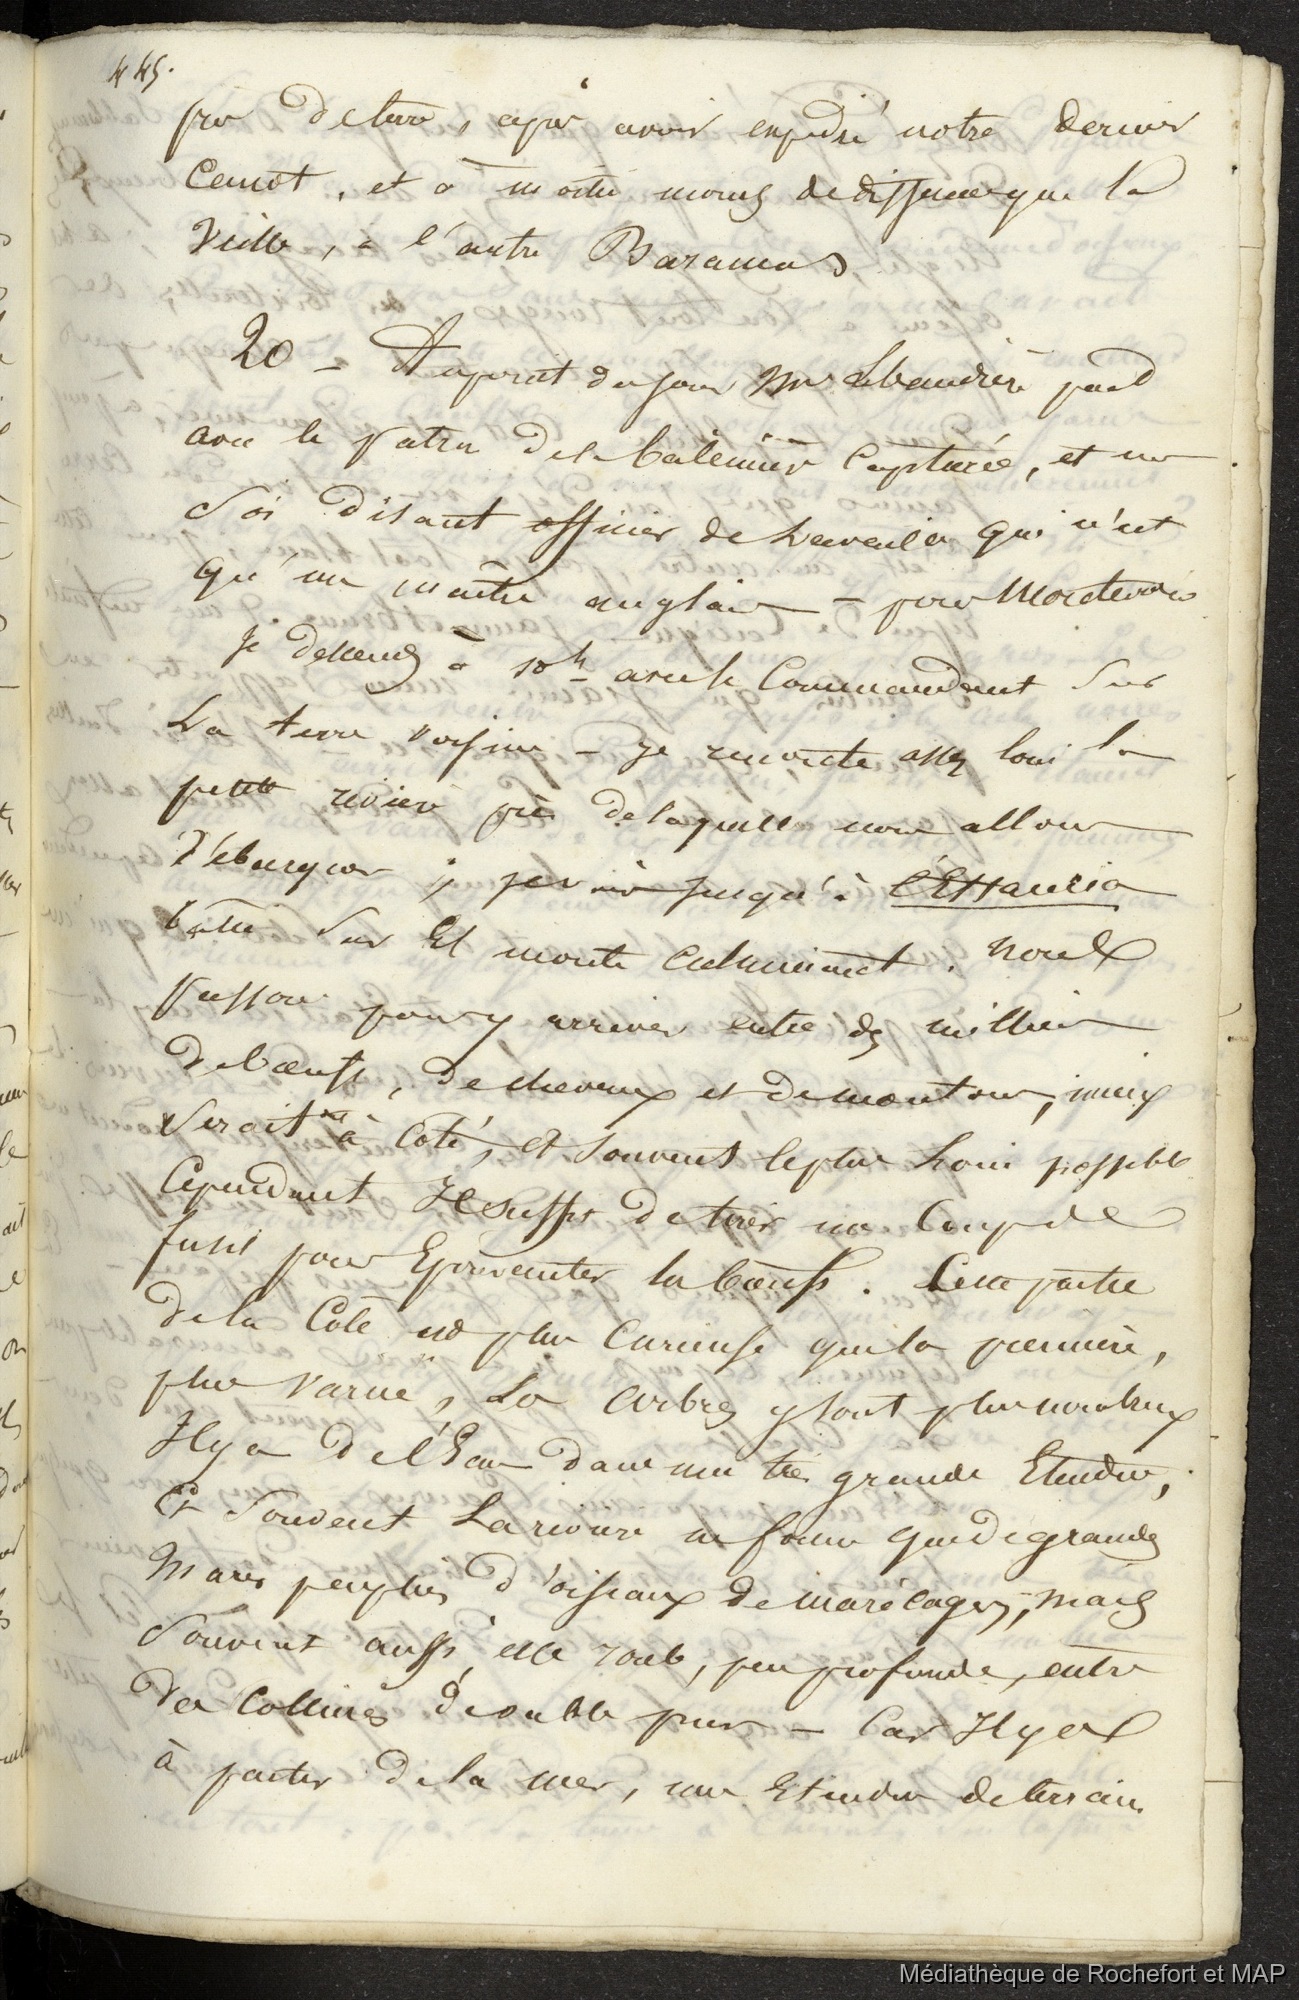 445.
près de terre, après avoir expedié notre dernier
Canot, et à moitié moins de distance que la
Ville, à l'autre
20 — Au point du jour Mr Lebeaudier part
avec le Patron de la baleinière Capturée, et un
Soi disant officier de qui n'est
qu'un maître anglais — pour Montevideo
Je descends à 10h avec le Commandant Sur
La terre voisine — Je remonte assez loin la
petite rivière près de laquelle nous allons
débarquer, je jusqu'à l'Estancia
batie Sur Et monte culminant. nous
Passons pour y arriver entre des milliers
de bœufs, de chevaux et de moutons,
à Coté, et souvent le plus Loin possible
Cependant Il Suffit de tirer un Coup de
fusil pour Epouvanter les bœufs. Cette partie
de la Côte est plus Curieuse que la première,
plus variée, Les arbres y sont plus nombreux
Il y a de l'Eau dans une très grande Etendue,
Et Souvent La rivière ne forme que de grandes
Mares peuplées d'oiseaux de marécages, mais
Souvent aussi elle roule, peu profonde, entre
Des Collines de sable pur — Car Il y a
à partir de la mer, une Etendue de terrain
Médiathèque de Rochefort et MAP